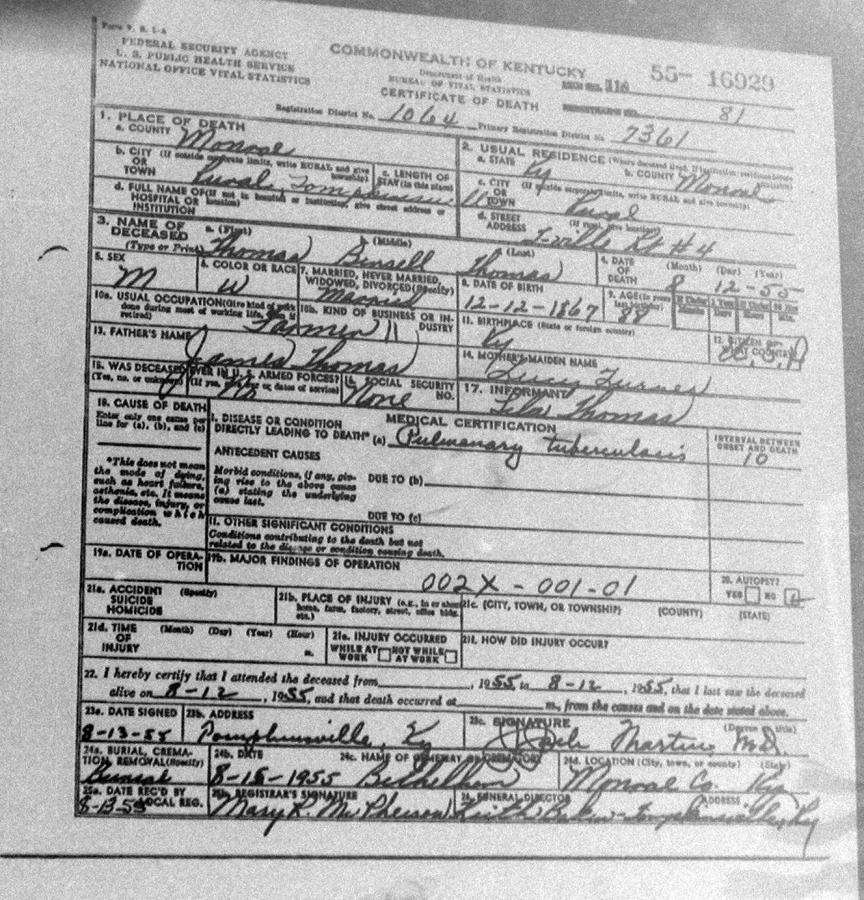 Form V. S. 1-A
FEDERAL SECURITY AGENCY
U. S. PUBLIC HEALTH SERVICE
NATIONAL OFFICE VITAL STATISTICS
COMMONWEALTH OF KENTUCKY
Department of Health
BUREAU OF VITAL STATISTICS
CERTIFICATE OF DEATH
116 55- 16929
81
Registration District No. 1064 Primary Registration District No. 7361
1. PLACE OF DEATH
a. COUNTY Monroe
b. CITY (If outside corporate limits, write RURAL and give township)
OR
TOWN Rural,
c. LENGTH OF STAY (in this place)
d. FULL NAME OF (If not in hospital or institution, give street address or location)
HOSPITAL OR
INSTITUTION
2. USUAL RESIDENCE (Where deceased lived. If institution: residence before
a. STATE Ky b. COUNTY Monroe
c. CITY (If outside corporate limits, write RURAL and give township)
OR
TOWN Rural
d. STREET (If rural, give location)
ADDRESS T-ville Rt #4
3. NAME OF DECEASED
(Type or Print)
a. (First) Thomas b. (Middle) c. (Last) Thomas
4. DATE OF DEATH (Month) (Day) (Year)
8 12-55
5. SEX M
6. COLOR OR RACE W
7. MARRIED, NEVER MARRIED, WIDOWED, DIVORCED (Specify)
Married
8. DATE OF BIRTH
12-12-1867
9. AGE (In years last birthday) 88
10a. USUAL OCCUPATION (Give kind of work done during most of working life, even if retired) Farmer
10b. KIND OF BUSINESS OR INDUSTRY
11. BIRTHPLACE (State or foreign country)
Ky
12. CITIZEN OF WHAT COUNTRY? U.S.A
13. FATHER'S NAME
James Thomas
14. MOTHER'S MAIDEN NAME
Lucy Turner
15. WAS DECEASED EVER IN U. S. ARMED FORCES?
(Yes, no, or unknown) (If yes, give war or dates of service) No
16. SOCIAL SECURITY NO.
None
17. INFORMANT
Thomas
18. CAUSE OF DEATH
Enter only one cause per line for (a), (b), and (c)
*This does not mean the mode of dying, such as heart failure, asthenia, etc. It means the disease, injury, or complication which caused death.
MEDICAL CERTIFICATION
I. DISEASE OR CONDITION DIRECTLY LEADING TO DEATH* (a) Pulmonary tuberculosis
INTERVAL BETWEEN ONSET AND DEATH
10
ANTECEDENT CAUSES
Morbid conditions, if any, giving rise to the above cause (a) stating the underlying cause last.
DUE TO (b)
DUE TO (c)
II. OTHER SIGNIFICANT CONDITIONS
Conditions contributing to the death but not related to the disease or condition causing death.
19a. DATE OF OPERATION
19b. MAJOR FINDINGS OF OPERATION
002X - 001-01
20. AUTOPSY?
YES NO
21a. ACCIDENT (Specify)
SUICIDE
HOMICIDE
21b. PLACE OF INJURY (e.g., in or about home, farm, factory, street, office bldg. etc.)
21c. (CITY, TOWN, OR TOWNSHIP) (COUNTY) (STATE)
21d. TIME (Month) (Day) (Year) (Hour)
OF
INJURY m.
21e. INJURY OCCURRED
WHILE AT WORK NOT WHILE AT WORK
21f. HOW DID INJURY OCCUR?
22. I hereby certify that I attended the deceased from , 1955, to 8-12, 1955, that I last saw the deceased
alive on 8-12, 1955, and that death occurred at m., from the causes and on the date stated above.
23a. DATE SIGNED
8-13-55
23b. ADDRESS
Tompkinsville, Ky
23c. SIGNATURE (Degree or title)
Martin, M.D.
24a. BURIAL, CREMATION, REMOVAL (Specify)
Burial
24b. DATE
8-15-1955
24c. NAME OF CEMETERY OR CREMATORY
Bethlehem
24d. LOCATION (City, town, or county) (State)
Monroe Co. Ky
25a. DATE REC'D BY LOCAL REG.
8-13-55
25b. REGISTRAR'S SIGNATURE
Mary R. McPherson
26. FUNERAL DIRECTOR ADDRESS
Tompkinsville, Ky